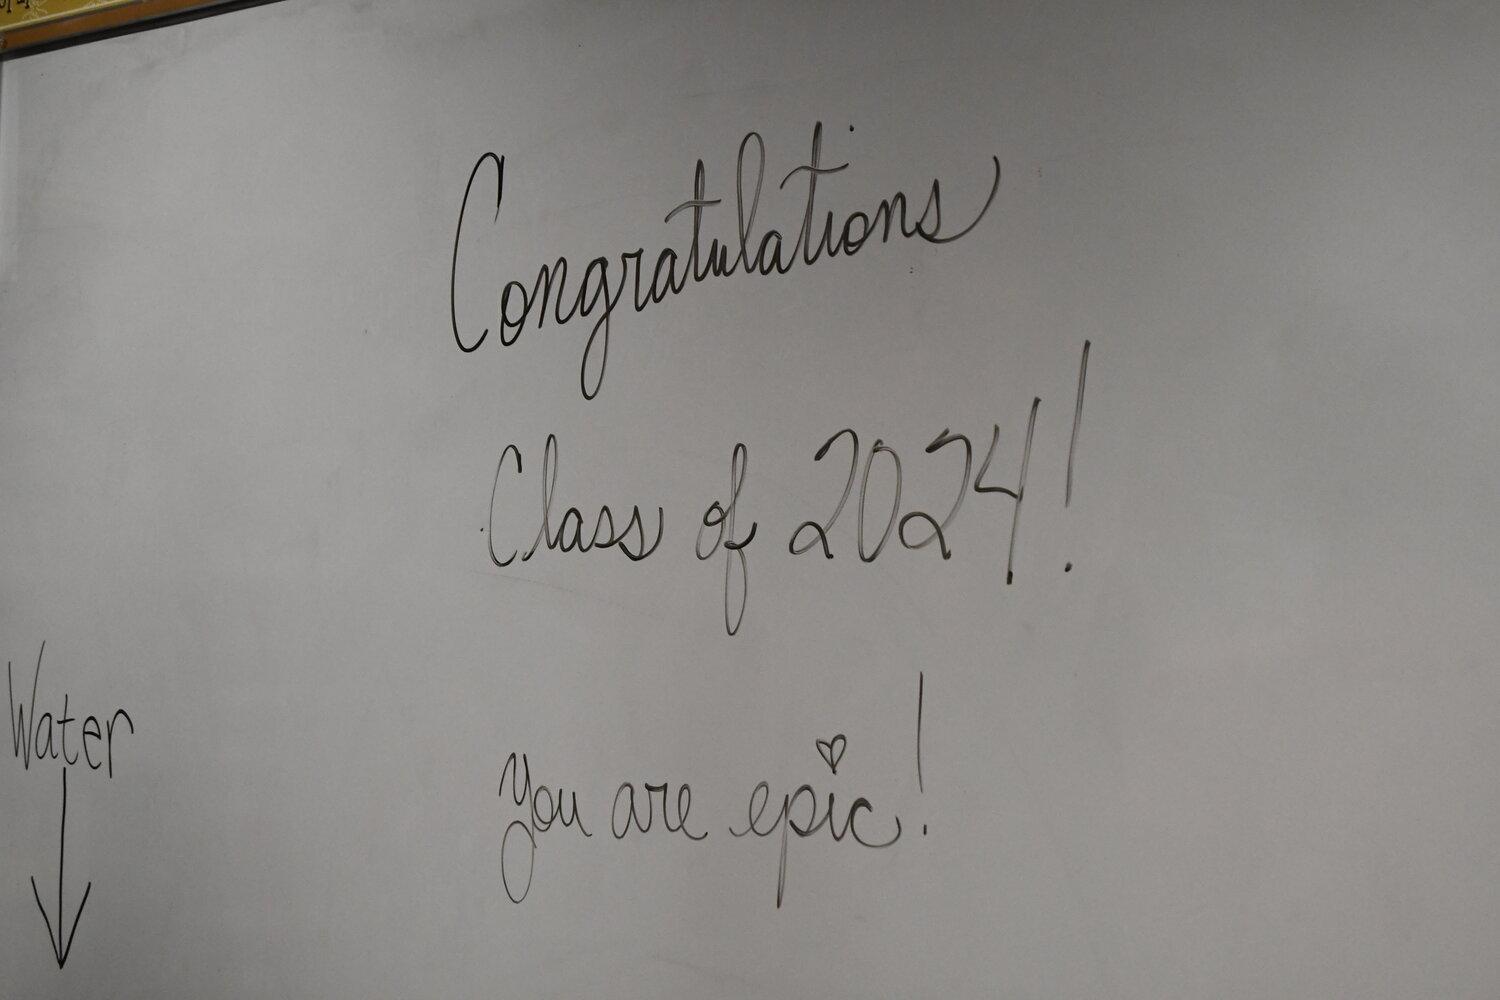 Congratulations
Class of 2024!
You are epic!
Water